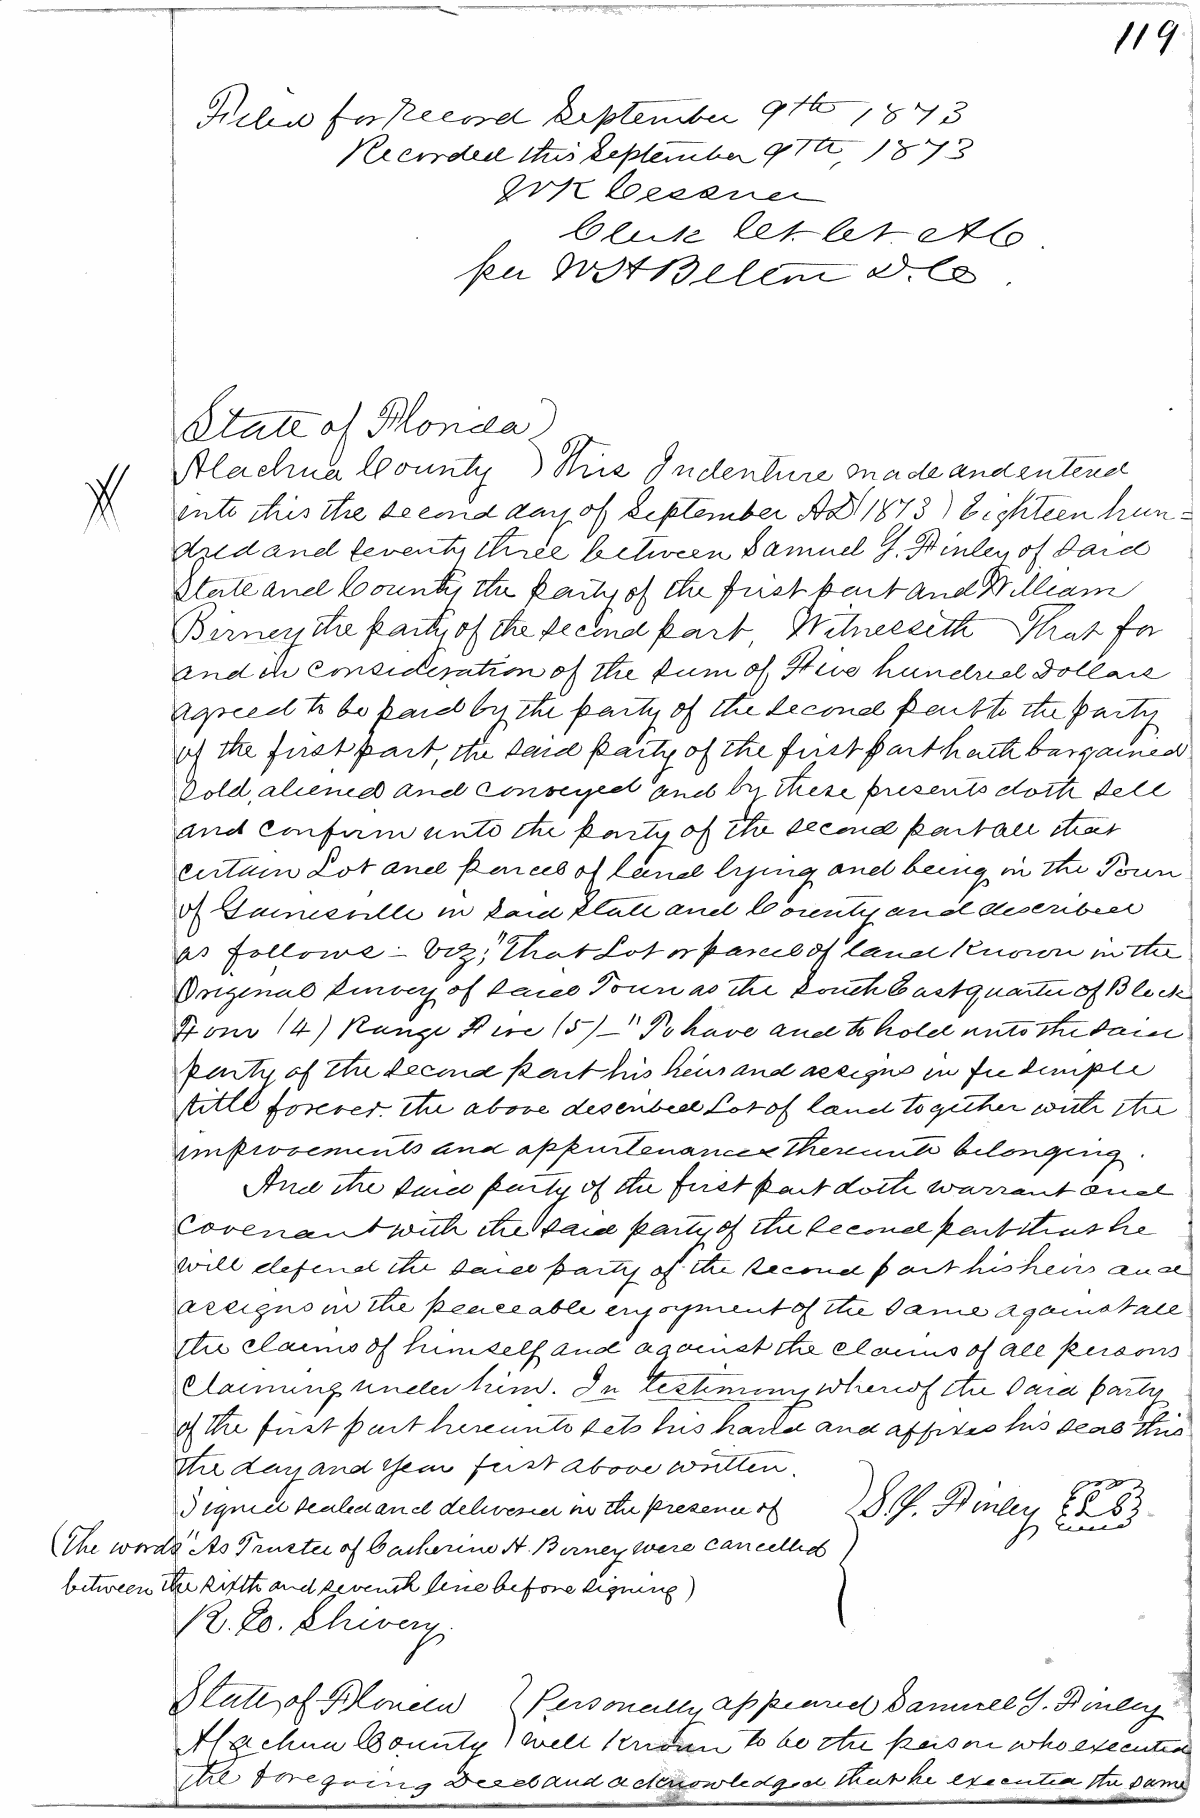 119
Filed for Record September 9th 1873
Recorded this September 9th, 1873
J W K Cessner
Clerk Ct. Ct. A C.
per W H Belton D. C.
State of Florida )
Alachua County ) This Indenture made and entered
into this the second day of September AD (1873) Eighteen hun=
dred and seventy three between Samuel Y. Finley of said
State and County the party of the first part and William
Birney the party of the second part, Witnesseth That for
and in consideration of the sum of Five hundred Dollars
agreed to be paid by the party of the second part to the party
of the first part, the said party of the first part hath bargained
sold, aliened and conveyed and by these presents doth sell
and confirm unto the party of the second part all that
certain Lot and parcel of land lying and being in the Town
of Gainesville in said State and County and described
as follows - viz; "That Lot or parcel of land known in the
Original survey of said Town as the South East quarter of Block
Four (4) Range Five (5) - " To have and to hold unto the said
party of the second part his heirs and assigns in fee simple
title forever. the above described Lot of land together with the
improvements and appurtenances thereunto belonging.
And the said party of the first part doth warrant and
covenant with the said party of the second part that he
will defend the said party of the second part his heirs and
assigns in the peaceable enjoyment of the same against all
the claims of himself and against the claims of all persons
claiming under him. In testimony whereof the said party
of the first part hereunto sets his hand and affixes his seal this
the day and year first above written.
Signed sealed and delivered in the presence of ) S. Y. Finley
(The words "As Trustee of Catherine H. Birney were cancelled
between the sixth and seventh line before signing)
R. Shivery.
State of Florida ) Personally appeared Samuel Y. Finley
Alachua County ) well known to be the person who executed
the foregoing Deed and acknowledged that he executed the same